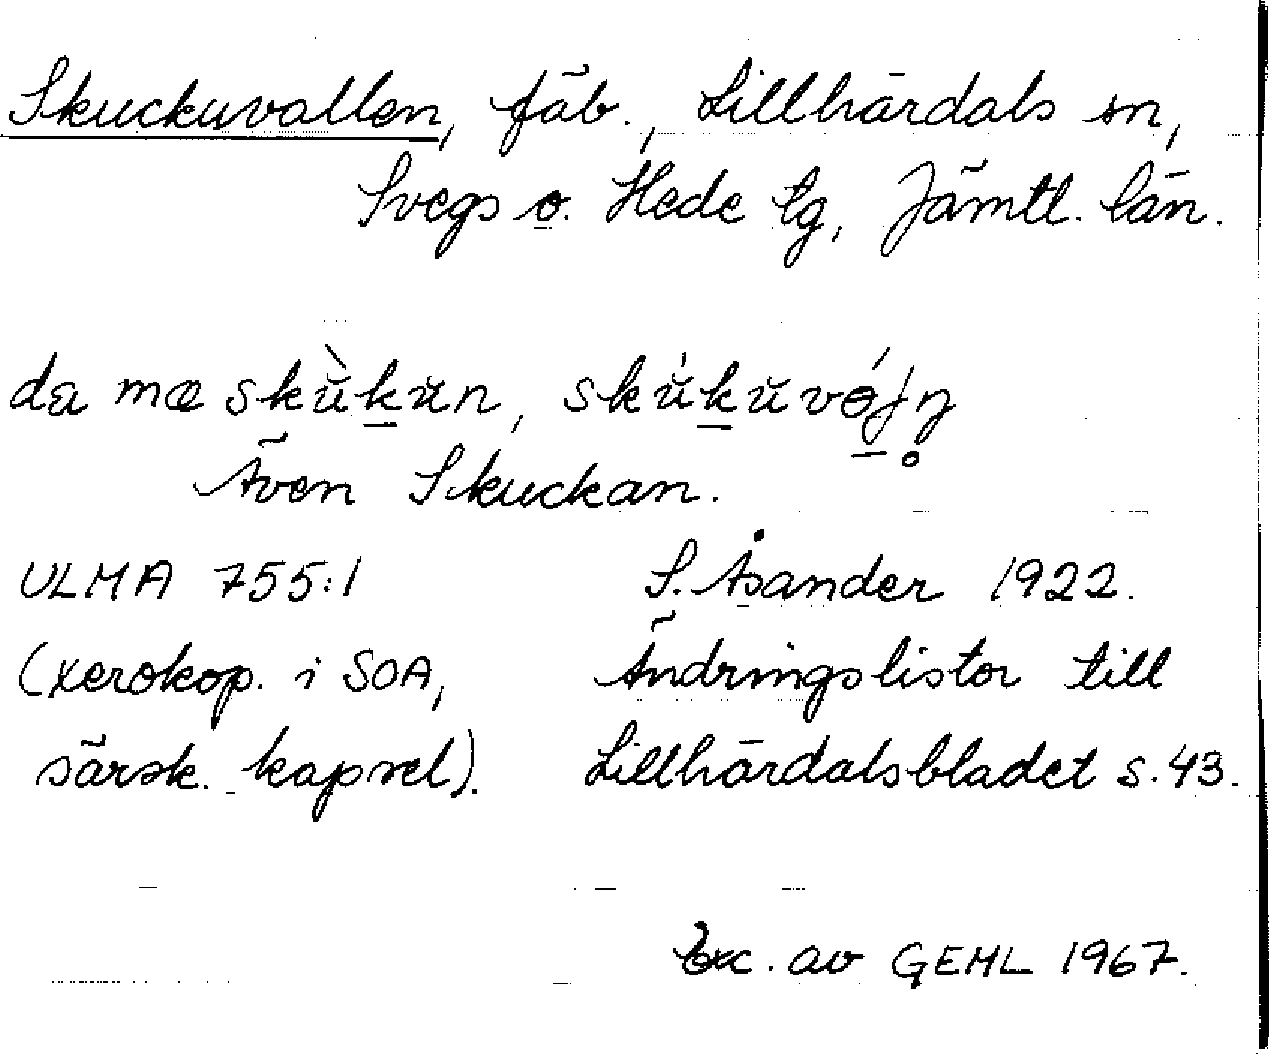 Skuckuvallen, fäb., Lillhärdals sn,
Svegs o. Hede tg, Jämtl. län.
da mæ skŭ̀kŭn, skŭ́kŭvǿjn̥
Även Skuckan.
ULMA 755:1 S. Åsander 1922.
(xerokop. i SOA, Ändringslistor till
särsk. kapsel). Lillhärdalsbladet s. 43.
Exc. av GEHL 1967.